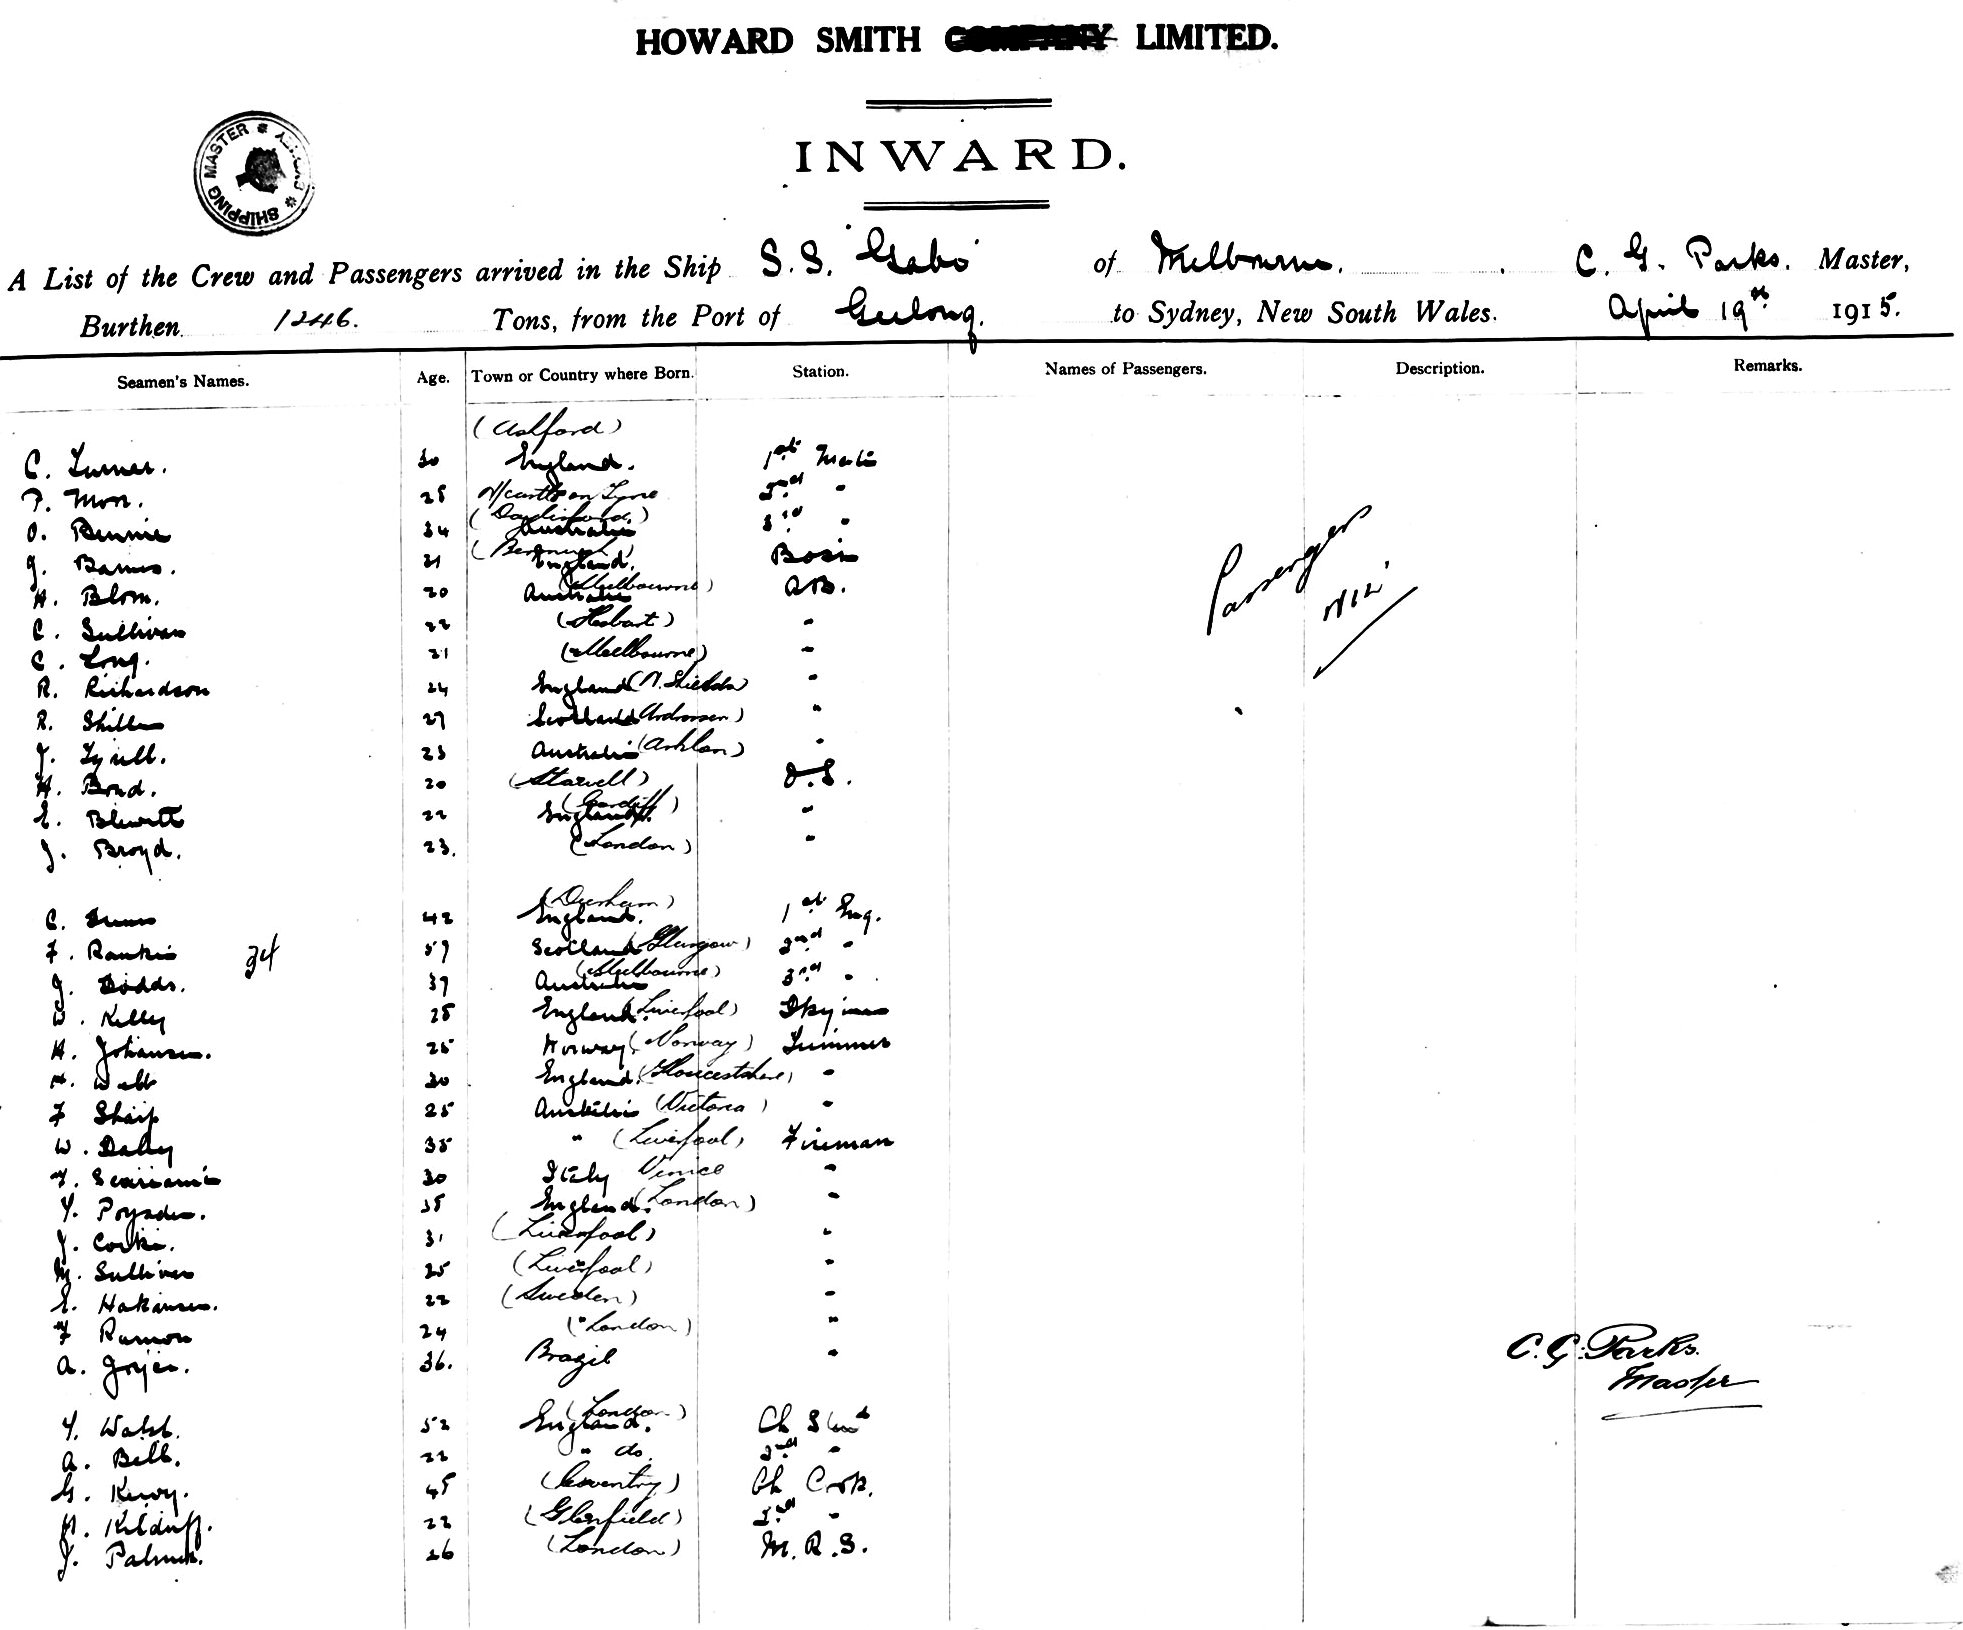 HOWARD SMITH COMPANY LIMITED.
SHIPPING MASTER * SYDNEY *
INWARD.
A List of the Crew and Passengers arrived in the Ship S.S. "Gabo" of Melbourne. C. G. Parks. Master,
Burthen 1246. Tons, from the Port of Geelong. to Sydney, New South Wales. April 19th 1915.
Seamen's Names. Age. Town or Country where Born. Station. Names of Passengers. Description. Remarks.
(Ashford)
C. Turner. 30 England. 1st Mate
P. 25 N/castle on Tyne 2nd "
O. Bennie 34 Australia 3rd "
J. Barnes. 31 England. Bosn
H. Blom. 20 Australia (Melbourne) AB.
C. Sullivan 22 (Hobart) "
C. Long. 21 (Melbourne) "
R. Richardson 24 England (N. Shields) "
R. 27 Scotland (Ardrossan) "
J. Tyrell. 23 Australia "
H. Bond. 20 (Stawell) O.S.
(Cardiff)
E. Blewett 22 England "
J. Broyd. 23. (London) "
Passengers
Nil
(Durham)
C. 42 England. 1st Eng.
F. Rankin 59 Scotland (Glasgow) 2nd "
34
(Melbourne)
J. Dodds. 39 Australia 3rd "
W. Kelly 25 England. (Liverpool)
H. Johansen. 25 Norway. (Norway) Trimmer
H. Webb 30 England. "
F Sharp 25 Australia (Victoria) "
W. Daley 35 " (Liverpool) Fireman
30 Italy Venice "
Y. Poysden. 35 England. (London) "
J. Corkin. 31 (Liverpool) "
M. Sullivan 25 (Liverpool) "
E. Hakansen. 22 (Sweden) "
F Ramon 24 (London) "
A. 36. Brazil "
C. G. Parks.
Master
(London)
Y. Walsh. 52 England. Ch Stwd
A. Bell. 22 " do. 2nd "
G. 45 (Coventry) Ch Cook.
H. Kilduff. 22 (Glenfield) 2nd "
J. 26 (London) M.R.S.